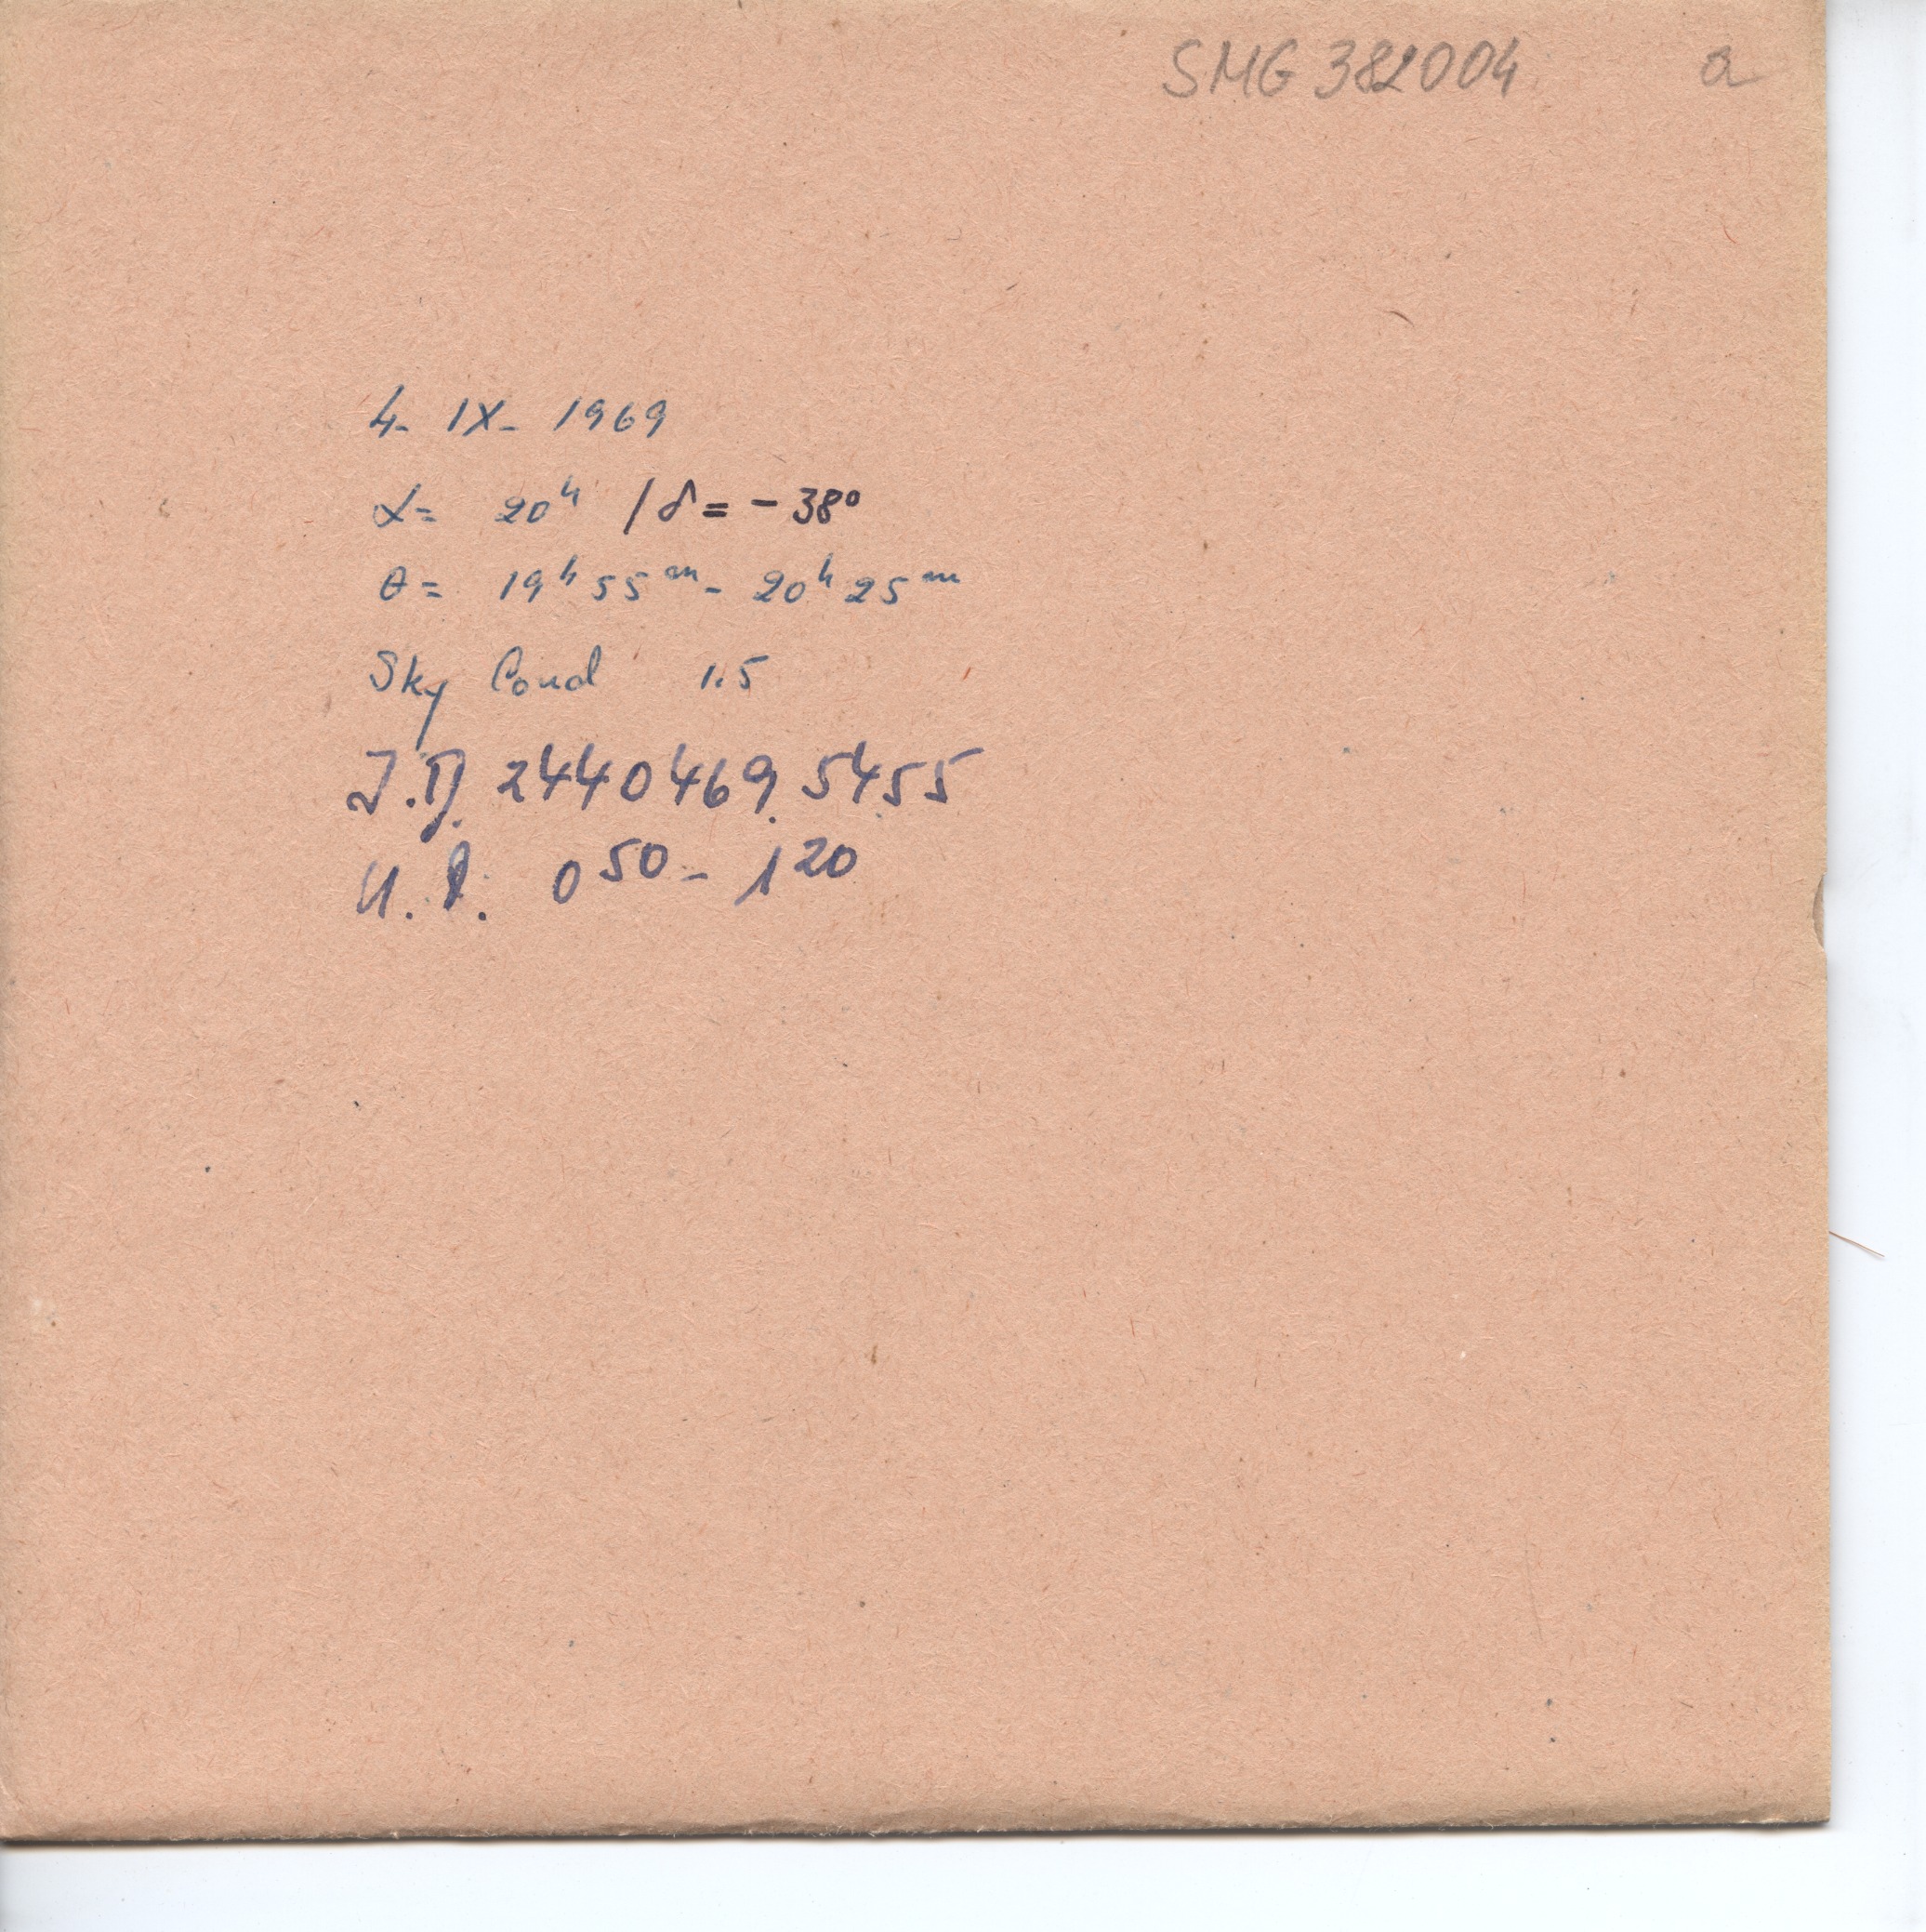 SMG 382004 a
4- IX- 1969
α= 20ʰ / δ= - 38°
θ= 19ʰ 55ᵐ - 20ʰ 25ᵐ
Sky Cond 1.5
J.D. 2440469.5455
U.T. 0⁵⁰ - 1²⁰